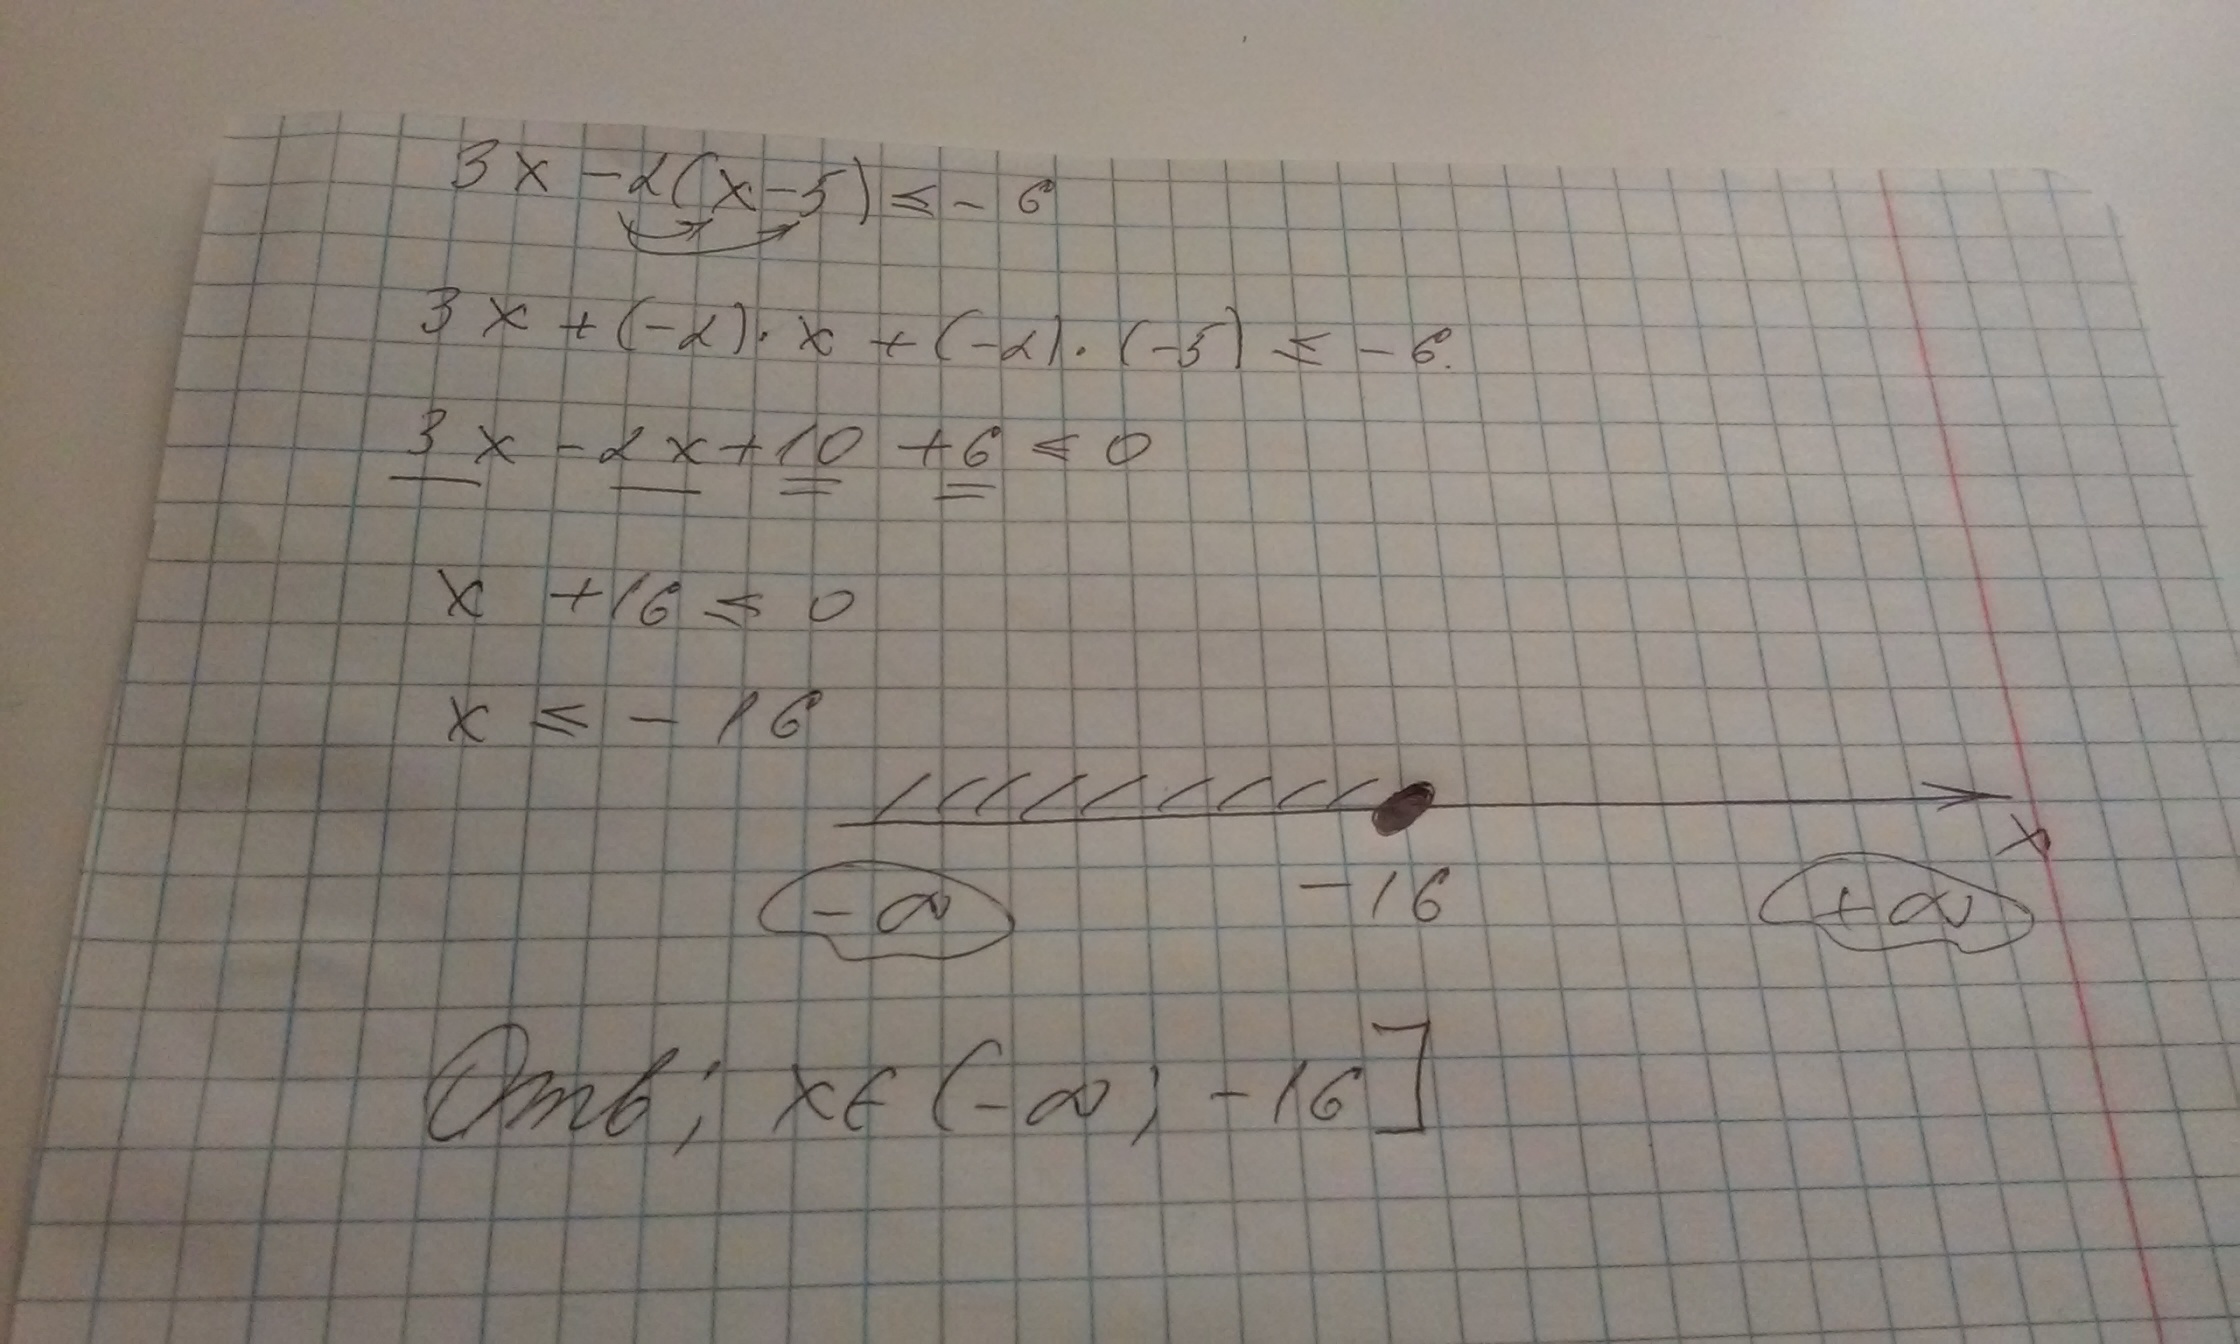 3x - 2(x - 5) ≤ - 6
3x + (-2) · x + (-2) · (-5) ≤ - 6.
3x - 2x + 10 + 6 ≤ 0
x + 16 ≤ 0
x ≤ - 16
x
- ∞ - 16 + ∞
Отв; x ∈ (- ∞; - 16]